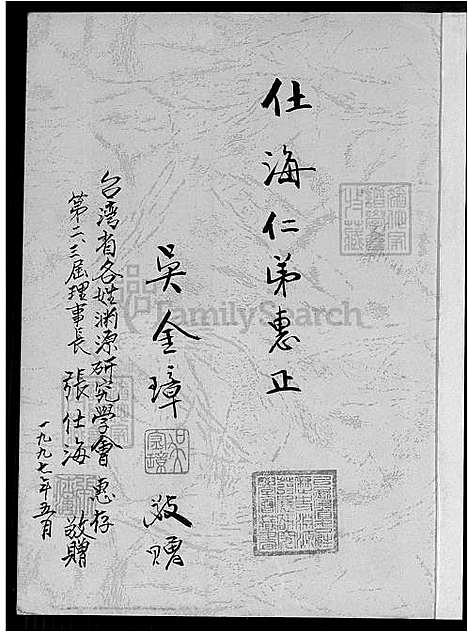 仕海仁弟惠正
吳金璋 敬贈
台湾省各姓渊源研究學會 惠存
第二、三屆理事長 張仕海 敬贈
一九九七年五月
FamilySearch